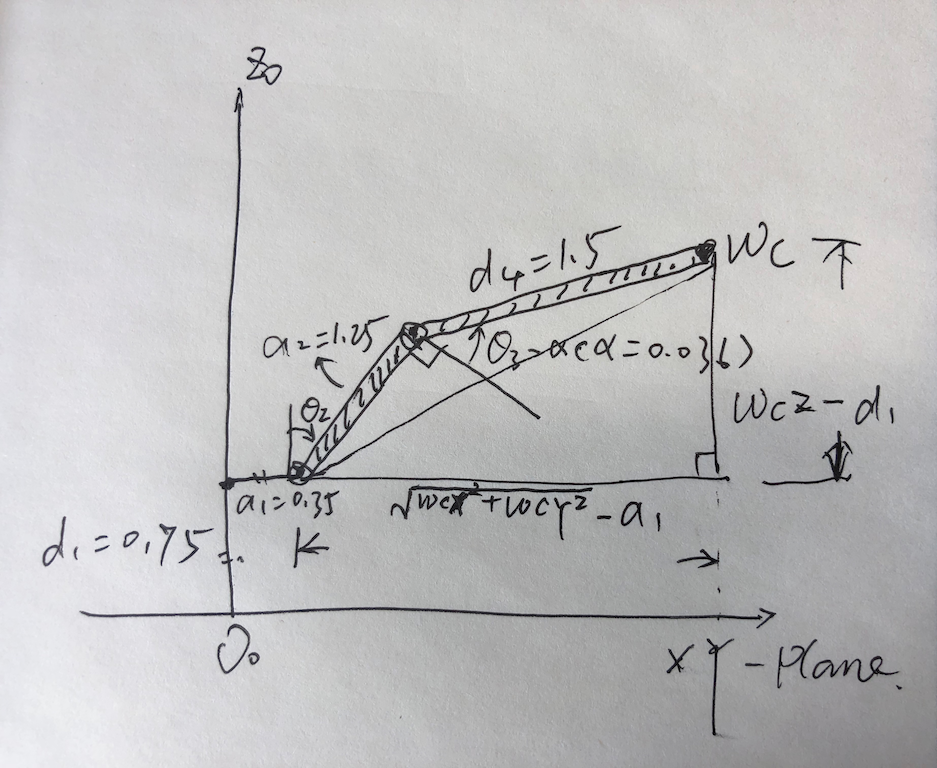 Z0
WC
d4=1.5
a2=1.25
θ3-α(α=0.036)
θ2
WCZ-d1
a1=0.35
√WCX²+WCY²-a1
d1=0.75
O0
XY-Plane.